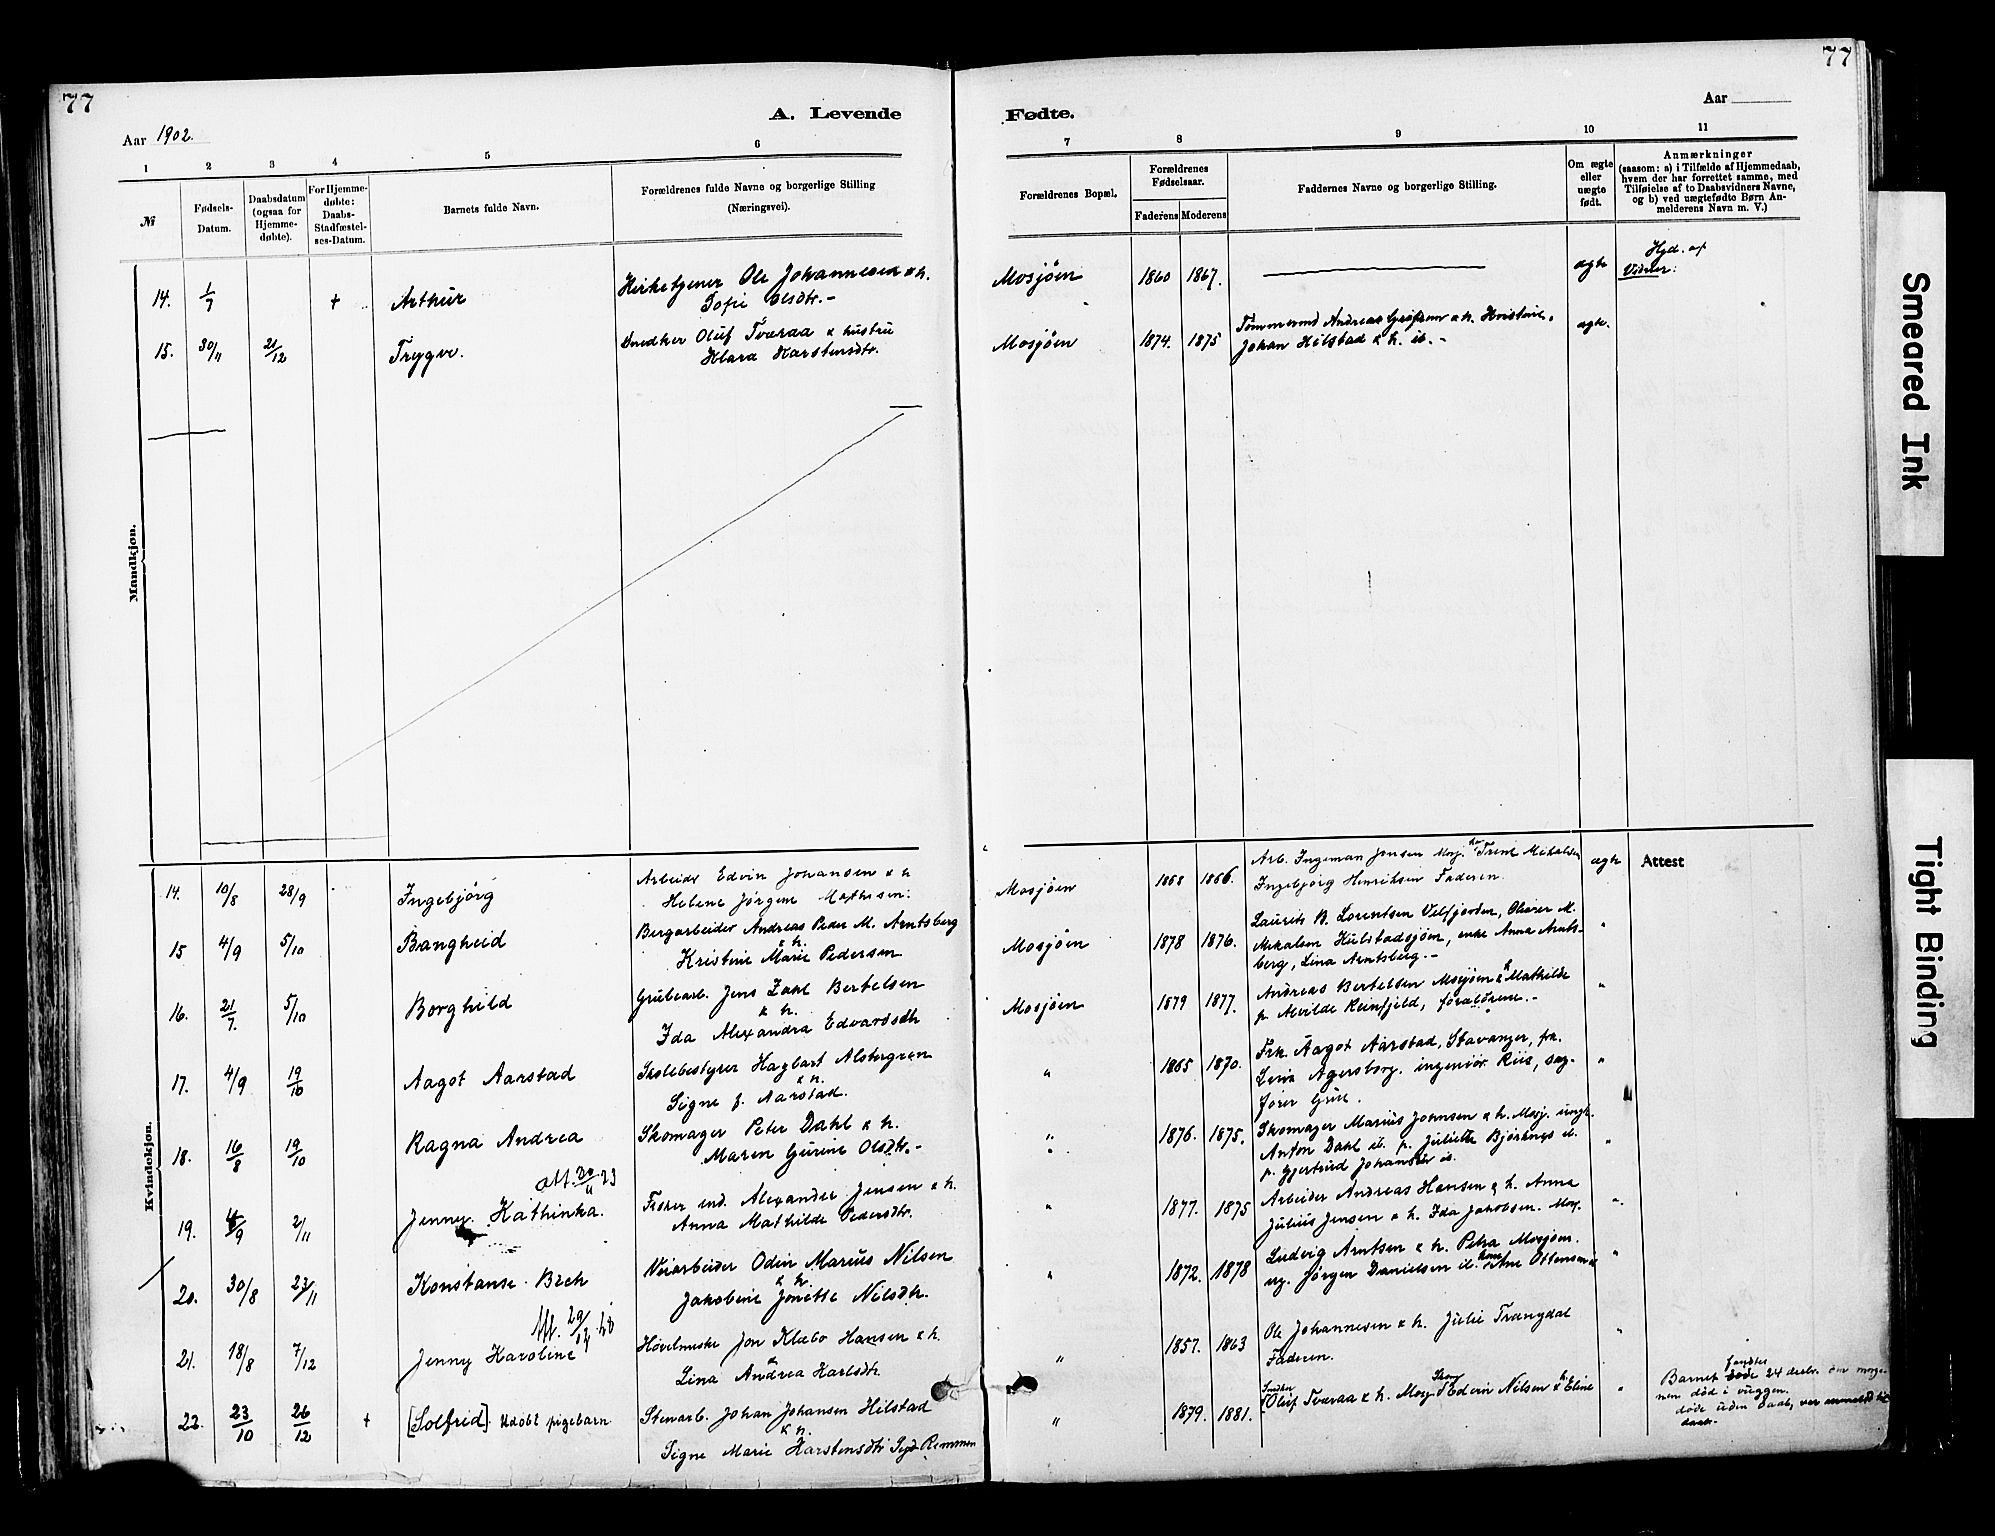 77
77
A. Levende
Fødte.
Aar 1902.
Aar
1 2 3 4 5 6 7 8 9 10 11
№
Fødsels-
Datum.
Daabsdatum
(ogsaa for
Hjemme-
døbte).
For Hjemme-
døbte:
Daabs-
Stadfæstel-
ses-Datum.
Barnets fulde Navn.
Forældrenes fulde Navne og borgerlige Stilling
(Næringsvei).
Forældrenes Bopæl.
Forældrenes
Fødselsaar.
Faderens Moderens
Faddernes Navne og borgerlige Stilling.
Om ægte
eller
uægte
født.
Anmærkninger
(saasom: a) i Tilfælde af Hjemmedaab,
hvem der har forrettet samme, med
Tilføielse af to Daabsvidners Navne,
og b) ved uægtefødte Børn An-
melderens Navn m. V.)
Mandkjøn.
14. 1/7 + Arthur
Kirketjener Ole Johannesen & h.
Sofie Olsdtr. -
Mosjøen 1860 1867. ægte
Hjd. af
Vidner:
15. 30/11 21/12 Trygve.
Snedker Oluf Tveraa & hustru
Klara Karstensdtr.
Mosjøen 1874. 1875
Tømmermd Andreas & h. Kristine,
Johan Hilstad & h. ib. -
ægte.
Kvindekjøn.
14. 10/8 28/9 Ingebjörg
Arbeider Edvin Johansen & h
Helene Jørgine Mathisen.
Mosjøen 1868 1866.
Arb. Ingeman Jensen Mosj. Trine Mikalsen
Ingebjörg Henriksen Faderen.
ægte Attest
15 4/9 5/10 Bangheid
Bergarbeider Andreas Peder M. Arntsberg
& h.
Kristine Marie Pedersen
Mosjøen 1878 1876.
Laurits B. Lorentsen Velfjorden, Oliver M.
Mikalsen Hulstadsjøen, enke Anna Arnts-
berg, Lina Arntsberg. -
"
16. 21/7. 5/10 Borghild
Grubearb. Jens Zahl Bertelsen
& h.
Ida Alexandra Edvardsdtr
Mosjøen 1879 1877.
Andreas Bertelsen Mosjøen & h Mathilde
p. Alvilde Reinfjeld, forældrene. -
"
17. 4/9 19/10 Aagot Aarstad
Skolebestyrer Hagbart Alstergren
& h.
Signe f. Aarstad.
" 1865 1870.
Frk. Aagot Aarstad, Stavanger, frk.
Agersborg. ingeniör Riis, sag-
fører
"
18. 16/8 19/10 Ragna Andrea
Skomager Peter Dahl & h.
Maren Gurine Olsdtr. -
" 1876. 1875.
Skomager Marius Johnsen & h. Mosj. ungk.
Anton Dahl ib. p. Juliette Bjørknes ib.
p. Gjertrud Johansen ib.
"
att. 20/11 23
19. 4/9 2/11 Jenny Kathinka.
Fisker ind. Alexander Jensen & h.
Anna Mathilde Pedersdtr.
" 1877. 1875
Arbeider Andreas Hansen & h. Anna
Julius Jensen & h. Ida Jakobsen. Mosj.
"
20. 30/8 23/11 Konstanse Bech
Veiarbeider Odin Marius Nilsen
& h.
Jakobine Jonette Nilsdtr.
" 1872. 1878
Ludvig Arntsen & h. Petra Mosjøen.
ug. Jørgen Danielsen ib. Ane Ottensen
"
att. 29/12 40
21. 18/8 7/12 Jenny Karoline
Høvelmester Jon Klæbo Hansen & h.
Lina Andrea Karlsdtr.
" 1857. 1863
Ole Johannesen & h. Julie Trangdal
Faderen.
"
22. 23/10 26/12 + [Solfrid]. Udöbt pigebarn.
Stenarb. Johan Johansen Hilstad
& h.
Signe Marie Karstensdtr Remmen
" 1879. 1881.
Snedker Oluf Tveraa & h. Mosj. Edvin Nilsen & h. Eline
"
Barnet fandtes 24 decbr. om morge-
nen död i vuggen.
döde uden daab, var anmeldt til
daab.
Smeared Ink
Tight Binding